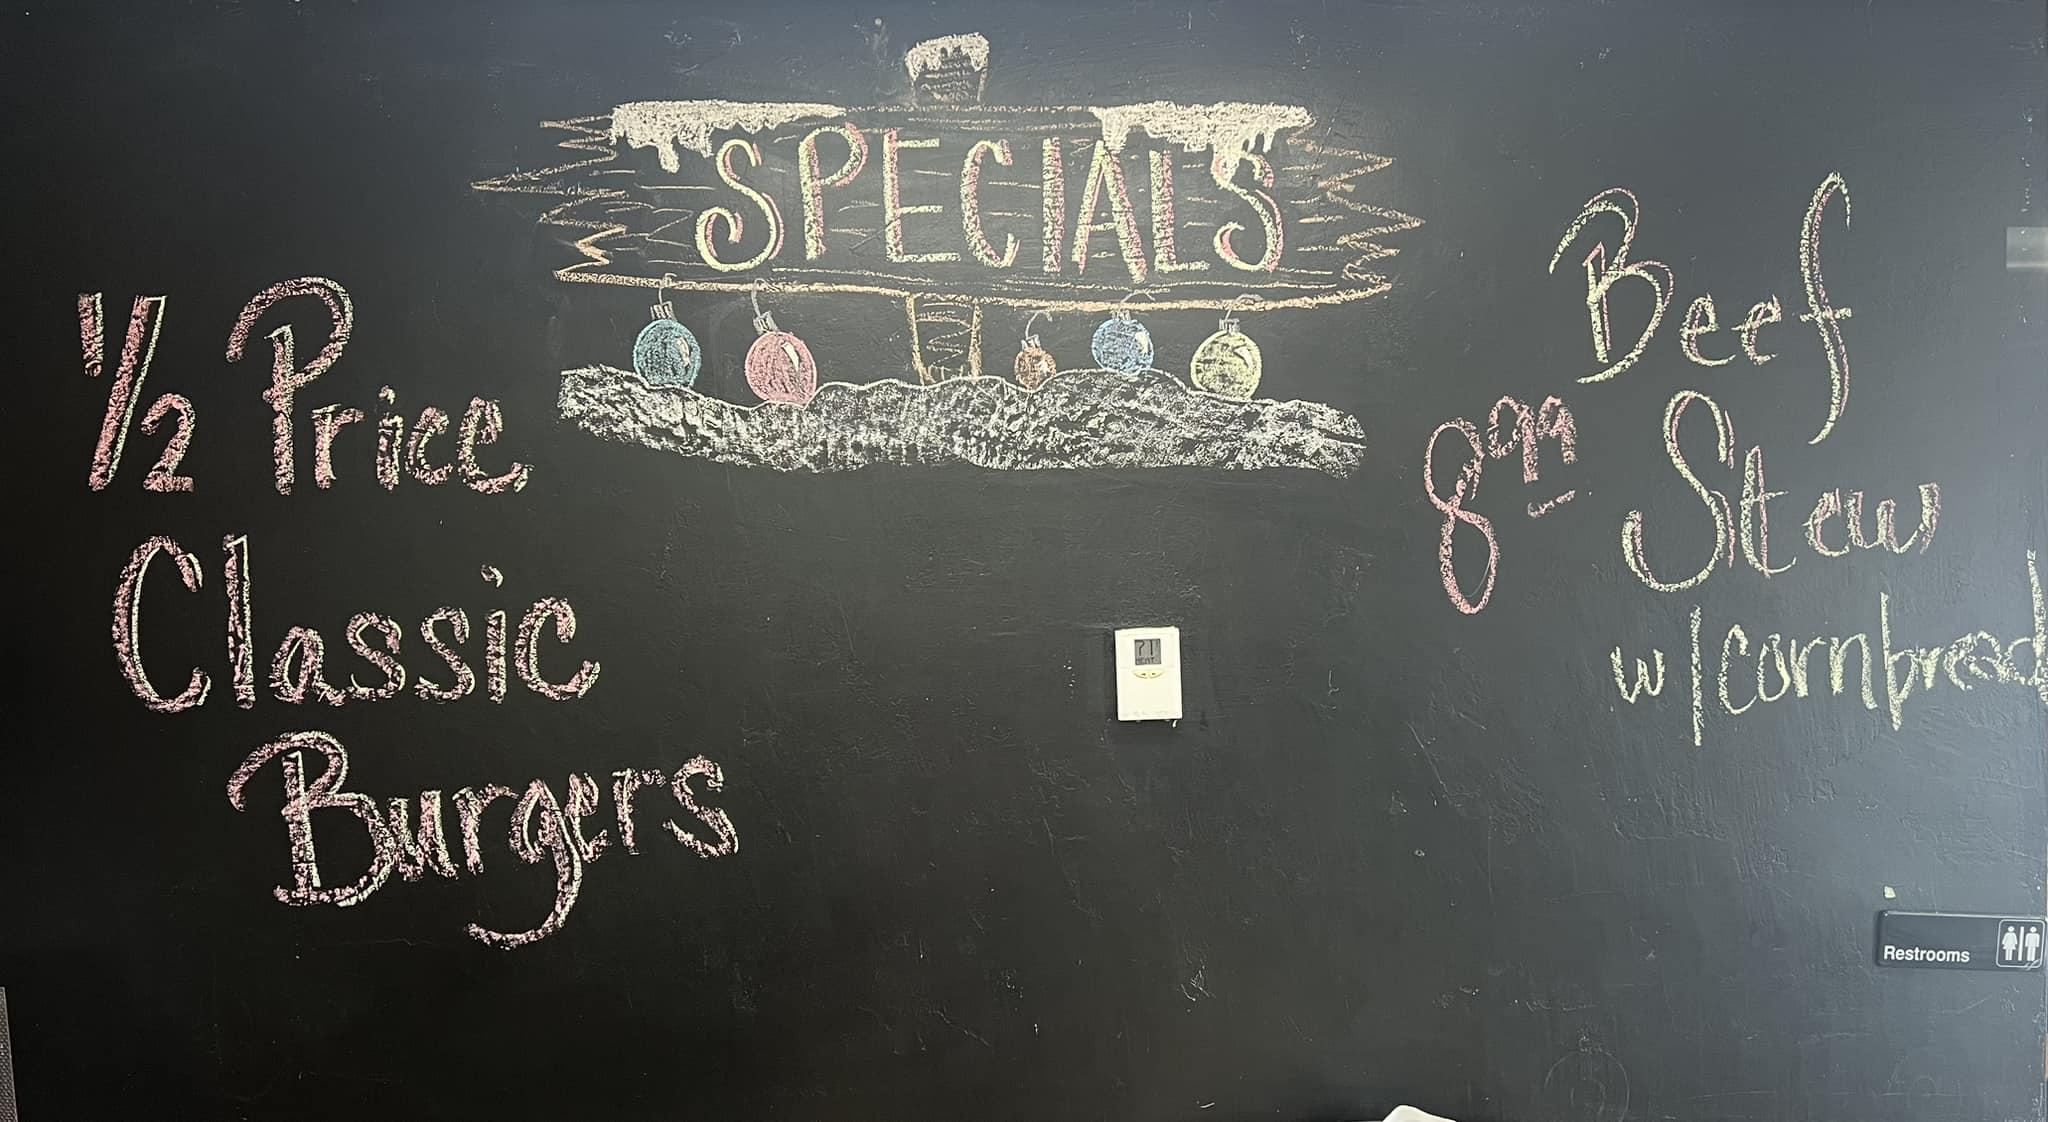 SPECIALS
1/2 Price
Classic
Burgers
Beef
8.99 Stew
w/cornbread
71
HEAT
Restrooms